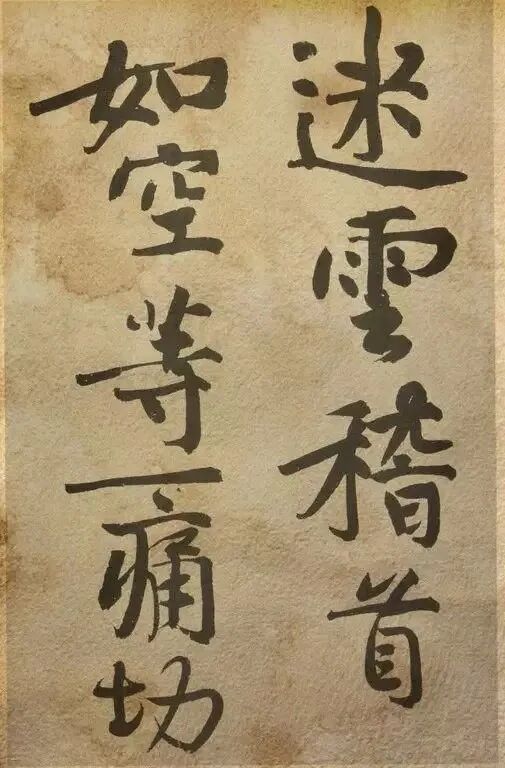 迷雲稽首
如空等一痛切